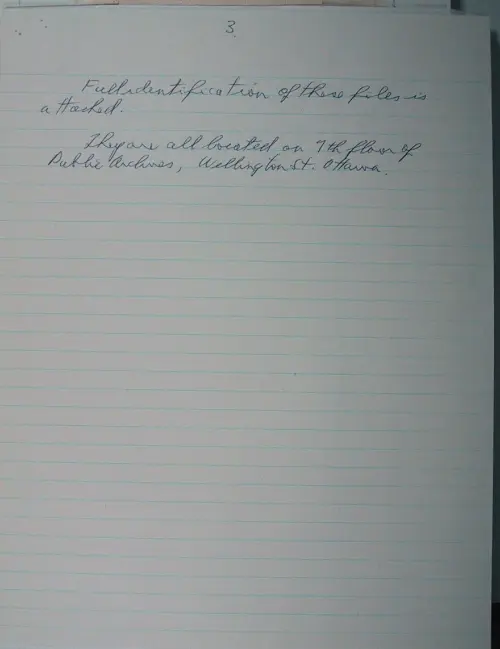 3
Full identification of these files is
attached.
They are all located on 7th floor of
Public Archives, Wellington St. Ottawa.